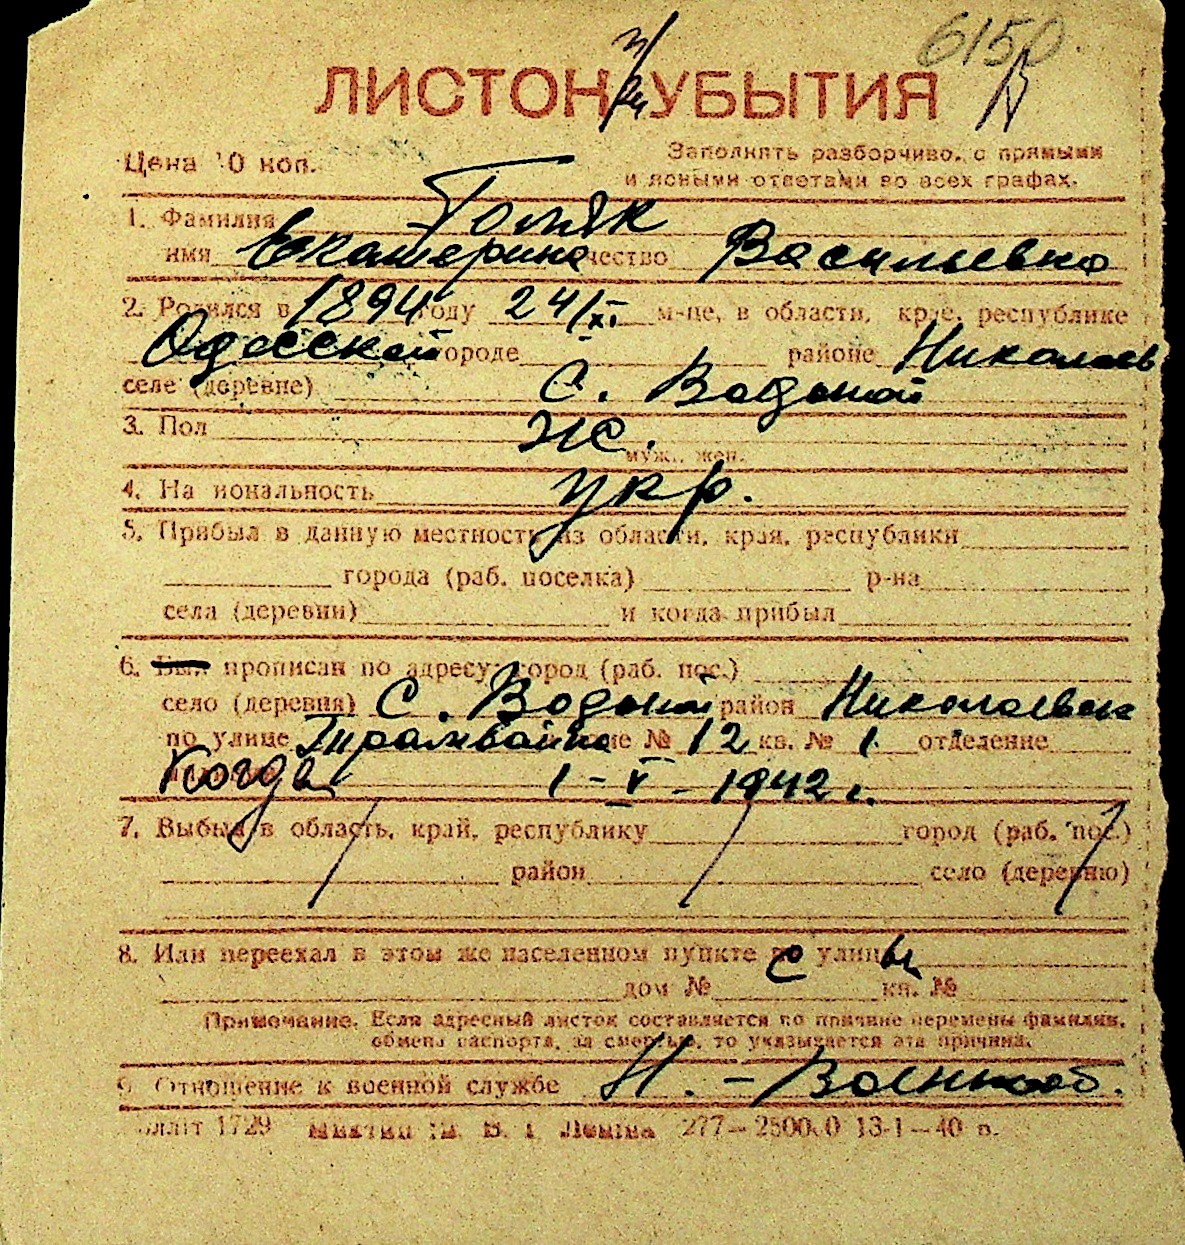 6150
ЛИСТОК УБЫТИЯ
Цена 10 коп.
Заполнять разборчиво, с прямыми
и ясными ответами во всех графах.
1. Фамилия Гопяк
имя Екатерина отчество Васильевна
2. Родился в 1894 году 24/XI. м-це, в области, крае, республике
Одесской городе районе Николаев
селе (деревне) С. Водяной
3. Пол Ж.
муж., жен.
4. Национальность укр.
5. Прибыл в данную местность из области, края, республики
города (раб. поселка) р-на
села (деревни) и когда прибыл
6. Был прописан по адресу: город (раб. пос.)
село (деревня) С. Водяной район Николаевск
по улице Трамвайна № 12 кв. № 1. отделение
Когда 1-V-1942 г.
7. Выбыл в область, край, республику город (раб. пос.)
район село (деревню)
8. Или переехал в этом же населенном пункте с улицы
дом № кв. №
Примечание. Если адресный листок составляется по причине перемены фамилии,
обмена паспорта, за смертью, то указывается эта причина.
9. Отношение к военной службе Н.-Военнооб.
1729 277—2500.0 13-1—40 п.